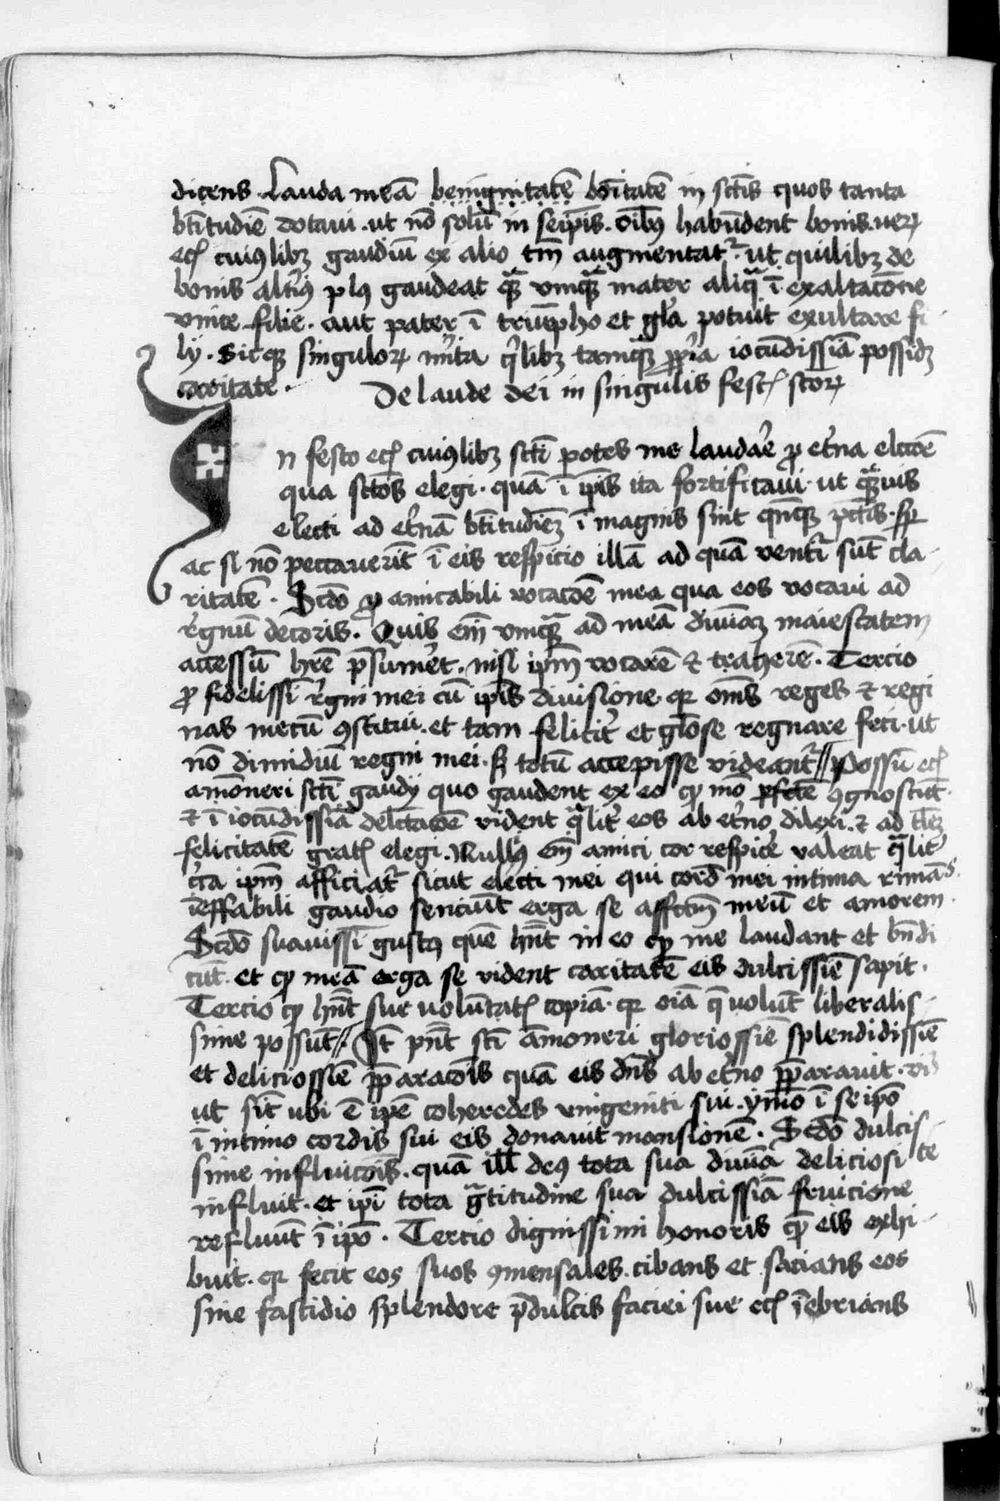 dicens. Lauda meā benignitatē bōitatē in sctīs quos tanta
btītudīe dotaui. ut nō solū in seip̄is. oībꝰ habūdent bonis. ueꝝ
ecī cuiꝰlibꝫ gaudiū ex alio tm̄ augmentat᷑. ut quilibꝫ de
bonis altīꝰ plꝰ gaudeat qᷓ vnqᷓ mater aliqᷓ ī exaltacōne
vnice filie. aut pater ī triūpho et glā potuit exultare fi
ly. Sicqꝫ singuloꝝ mīta qᷓlibꝫ tamqᷓ ꝓp̄a iocūdissīa possidꝫ
caritate.
De laude dei in singulis fest̄ sctoꝝ
In festo ecī cuiꝰlibꝫ sctī potes me laudar̄e ꝓ et̄na elccōe
qua sctōs elegi. quā ī ip̄is ita fortificaui. ut qᷓuis
electi ad et̄nā btītudīeꝫ ī magnis sint qn̄qꝫ pctīs. sꝑ
ac si nō peccauerīt ī eis respicio illā ad quā ventr̄i sūt cla-
ritatē. Scd̄o ꝓ amicabili vocacōe mea qua eos vocaui ad
r̄gnū decoris. Quis em̄ vnqᷓ ad meā diuīaꝫ maiestatem
accessū hr̄e p̄sumer̄et. nisi ip̄m vocarē ⁊ traherē. Tercio
ꝓ fidelissī r̄gni mei cū ip̄is diuisione. qꝛ om̄s reges ⁊ regi
nas mecū ꝯstitui. et tam felicit̄ et glōse regnare feci. ut
nō dimidiū regni mei. sꝫ totū accepisse videant᷑ // Possū ecī
amōneri sctī gaudy quo gaudent ex eo qꝫ mō ꝑfctē ꝯgnoscūt.
⁊ ī iocūdissīa delctacōe vidēt qᷓlit̄ eos ab et̄no dilexi. ⁊ ad tl̄eꝫ
felicitatē grat̄ elegi. Nullꝰ em̄ amici cor respicer̄e valeat qᷓlit̄
c̄ca ip̄m afficiat᷑ sicut electi mei qui cord̄ mei intima rimād̄.
īeffabili gaudio senciūt erga se affctm̄ meū et amorem.
Scd̄o suauissī gustꝰ quē hn̄t in eo qꝫ me laudant et bn̄di
cūt. et qꝫ meā erga se vident caritatē eis dulcissīe sapit.
Tercio qꝫ hn̄t sue volūtat̄ copiā. qꝛ oīa q̄ volūt liberalis-
sime possūt // Itē pn̄t sctī amoneri gloriossīe splendidissīe
et deliciossīe p̄paracōis quā eis dn̄s ab et̄no p̄parauit.
ut sīt ubi ē ip̄e coheredes vnigeniti sui. ymō ī seip̄o
ī intimo cordis sui eis donauit mansionē. Scd̄o dulcis-
sime influicōis. quā ill̄ deꝰ tota sua diuīa deliciosi te
influit. et ip̄i tota gᷓtitudine sua dulcissīa fruicione
refluūt ī ip̄o. Tercio dignissimi honoris qꝫ eis exhi-
buit. qꝛ fecit eos suos ꝯmensales. cibans et sacians eos
sine fastidio splendore p̄dulcis faciei sue ecī īebrians